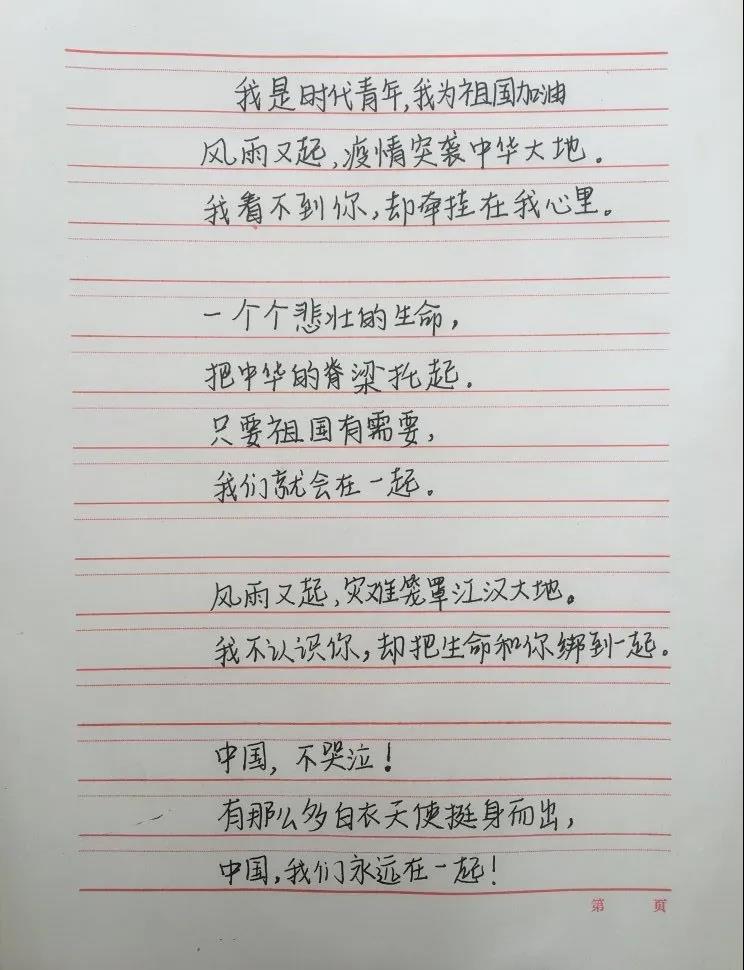 我是时代青年,我为祖国加油
风雨又起,疫情突袭中华大地。
我看不到你,却牵挂在我心里。
一个个悲壮的生命,
把中华的脊梁托起。
只要祖国有需要,
我们就会在一起。
风雨又起,灾难笼罩江汉大地。
我不认识你,却把生命和你绑到一起。
中国,不哭泣!
有那么多白衣天使挺身而出,
中国,我们永远在一起!
第 页